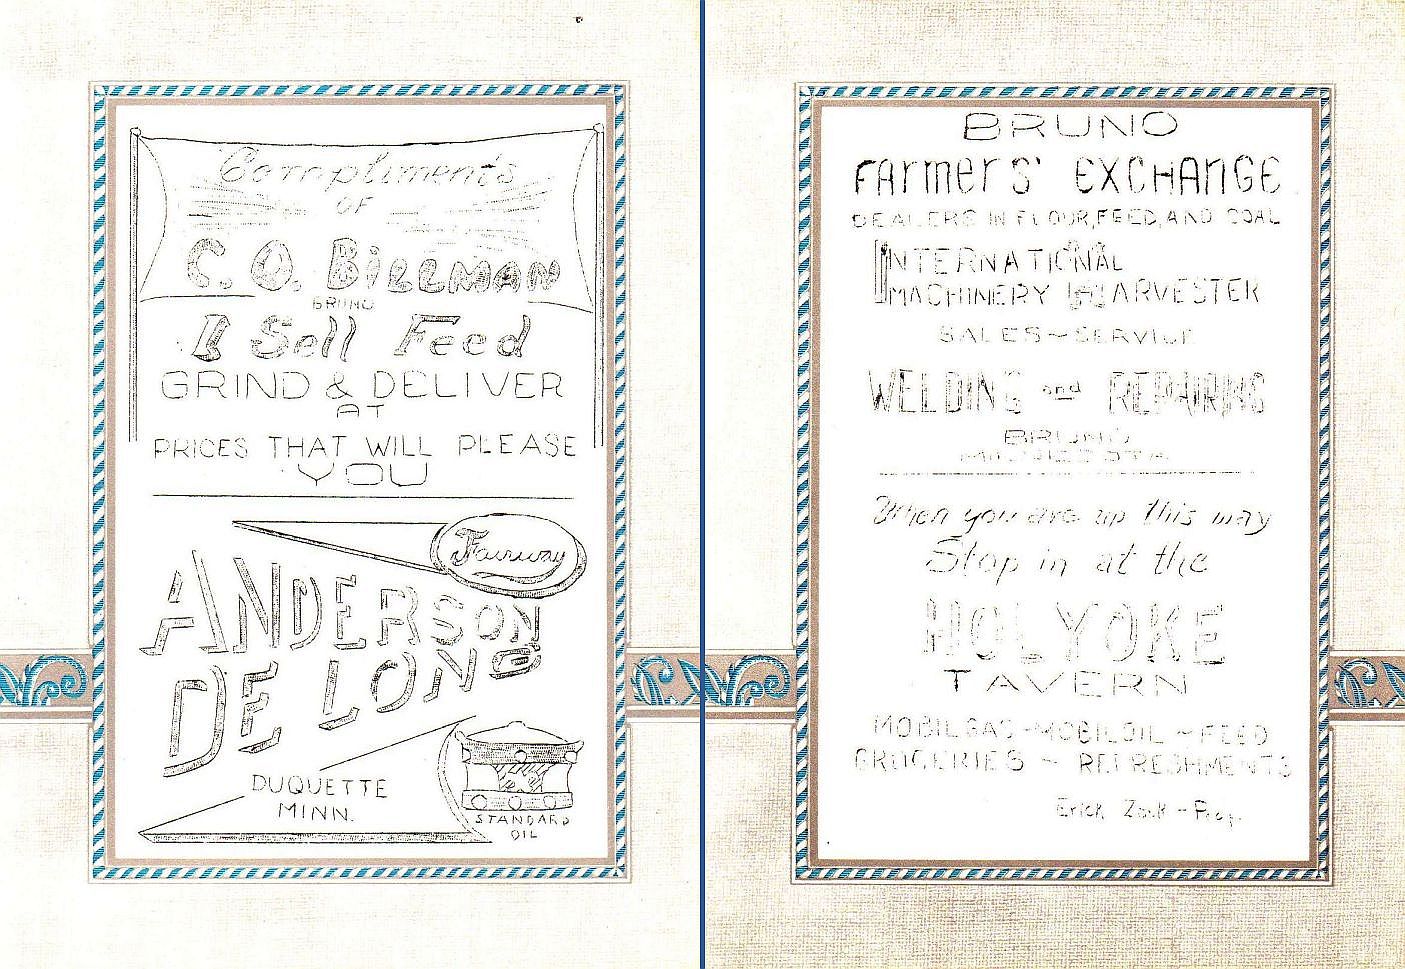 Compliments
OF
C. O. BiLLMAN
BRUNO
I Sell Feed
GRIND & DELIVER
AT
PRICES THAT WILL PLEASE
YOU
Fairway
ANDERSON
&
DE LONG
DUQUETTE
MINN.
STANDARD
OIL
BRUNO
FArmErS' EXCHAnGE
DEALERS IN FLOUR, FEED, AND COAL
INTERNATIONAL
MACHINERY HARVESTER
SALES - SERVICE
WELDING and REPAIRING
BRUNO
MINNESOTA
When you are up this way
Stop in at the
HOLYOKE
TAVERN
MOBILGAS - MOBILOIL - FEED
GROCERIES - REFRESHMENTS
Erick - Prop.